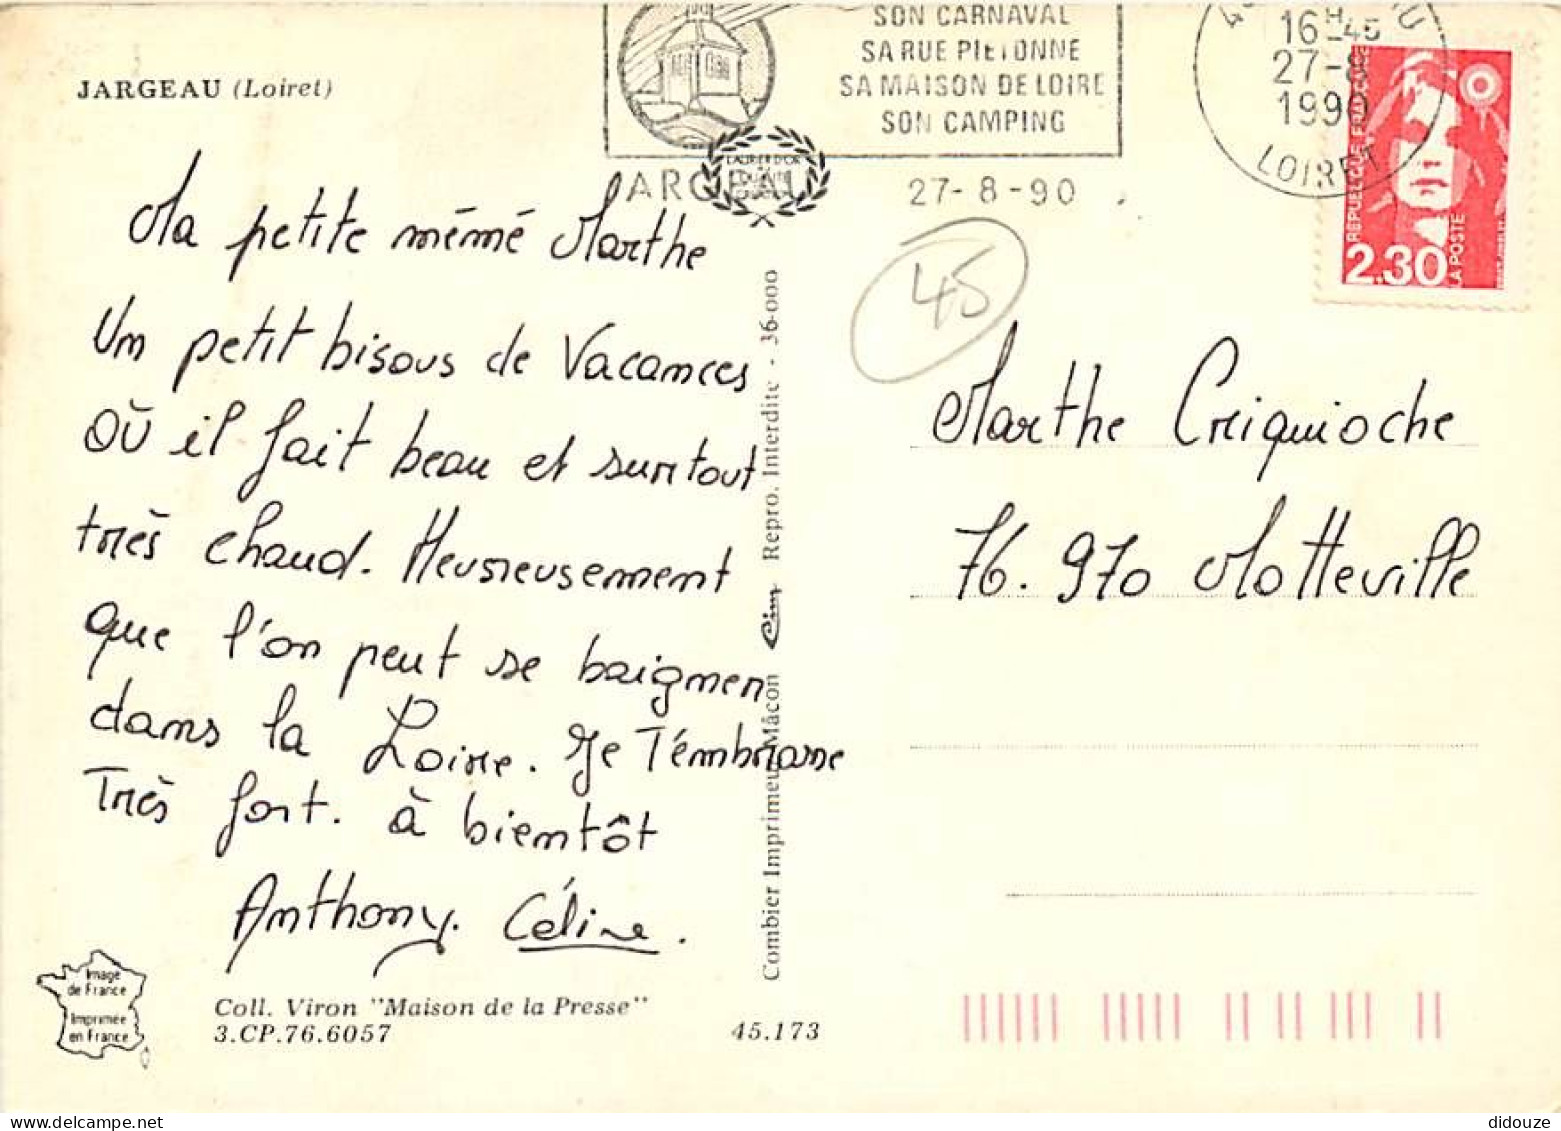 SON CARNAVAL
SA RUE PIETONNE
SA MAISON DE LOIRE
SON CAMPING
27-8-90
16H-45
27-8
1990
LOIRET
REPUBLIQUE FRANÇAISE
2.30
LA POSTE
JARGEAU (Loiret)
45
Ma petite mémé Marthe
Un petit bisous de Vacances
Où il fait beau et surtout
très chaud. Heureusement
que l'on peut se baigner
dans la Loire. Je T'embrasse
Très fort. à bientôt
Anthony. Céline.
Marthe Criquioche
76.970 Motteville
Combier Imprimeur Mâcon Cim Repro. Interdite - 36-000
Image
de France
Imprimée
en France
Coll. Viron "Maison de la Presse"
3.CP.76.6057
45.173
didouze